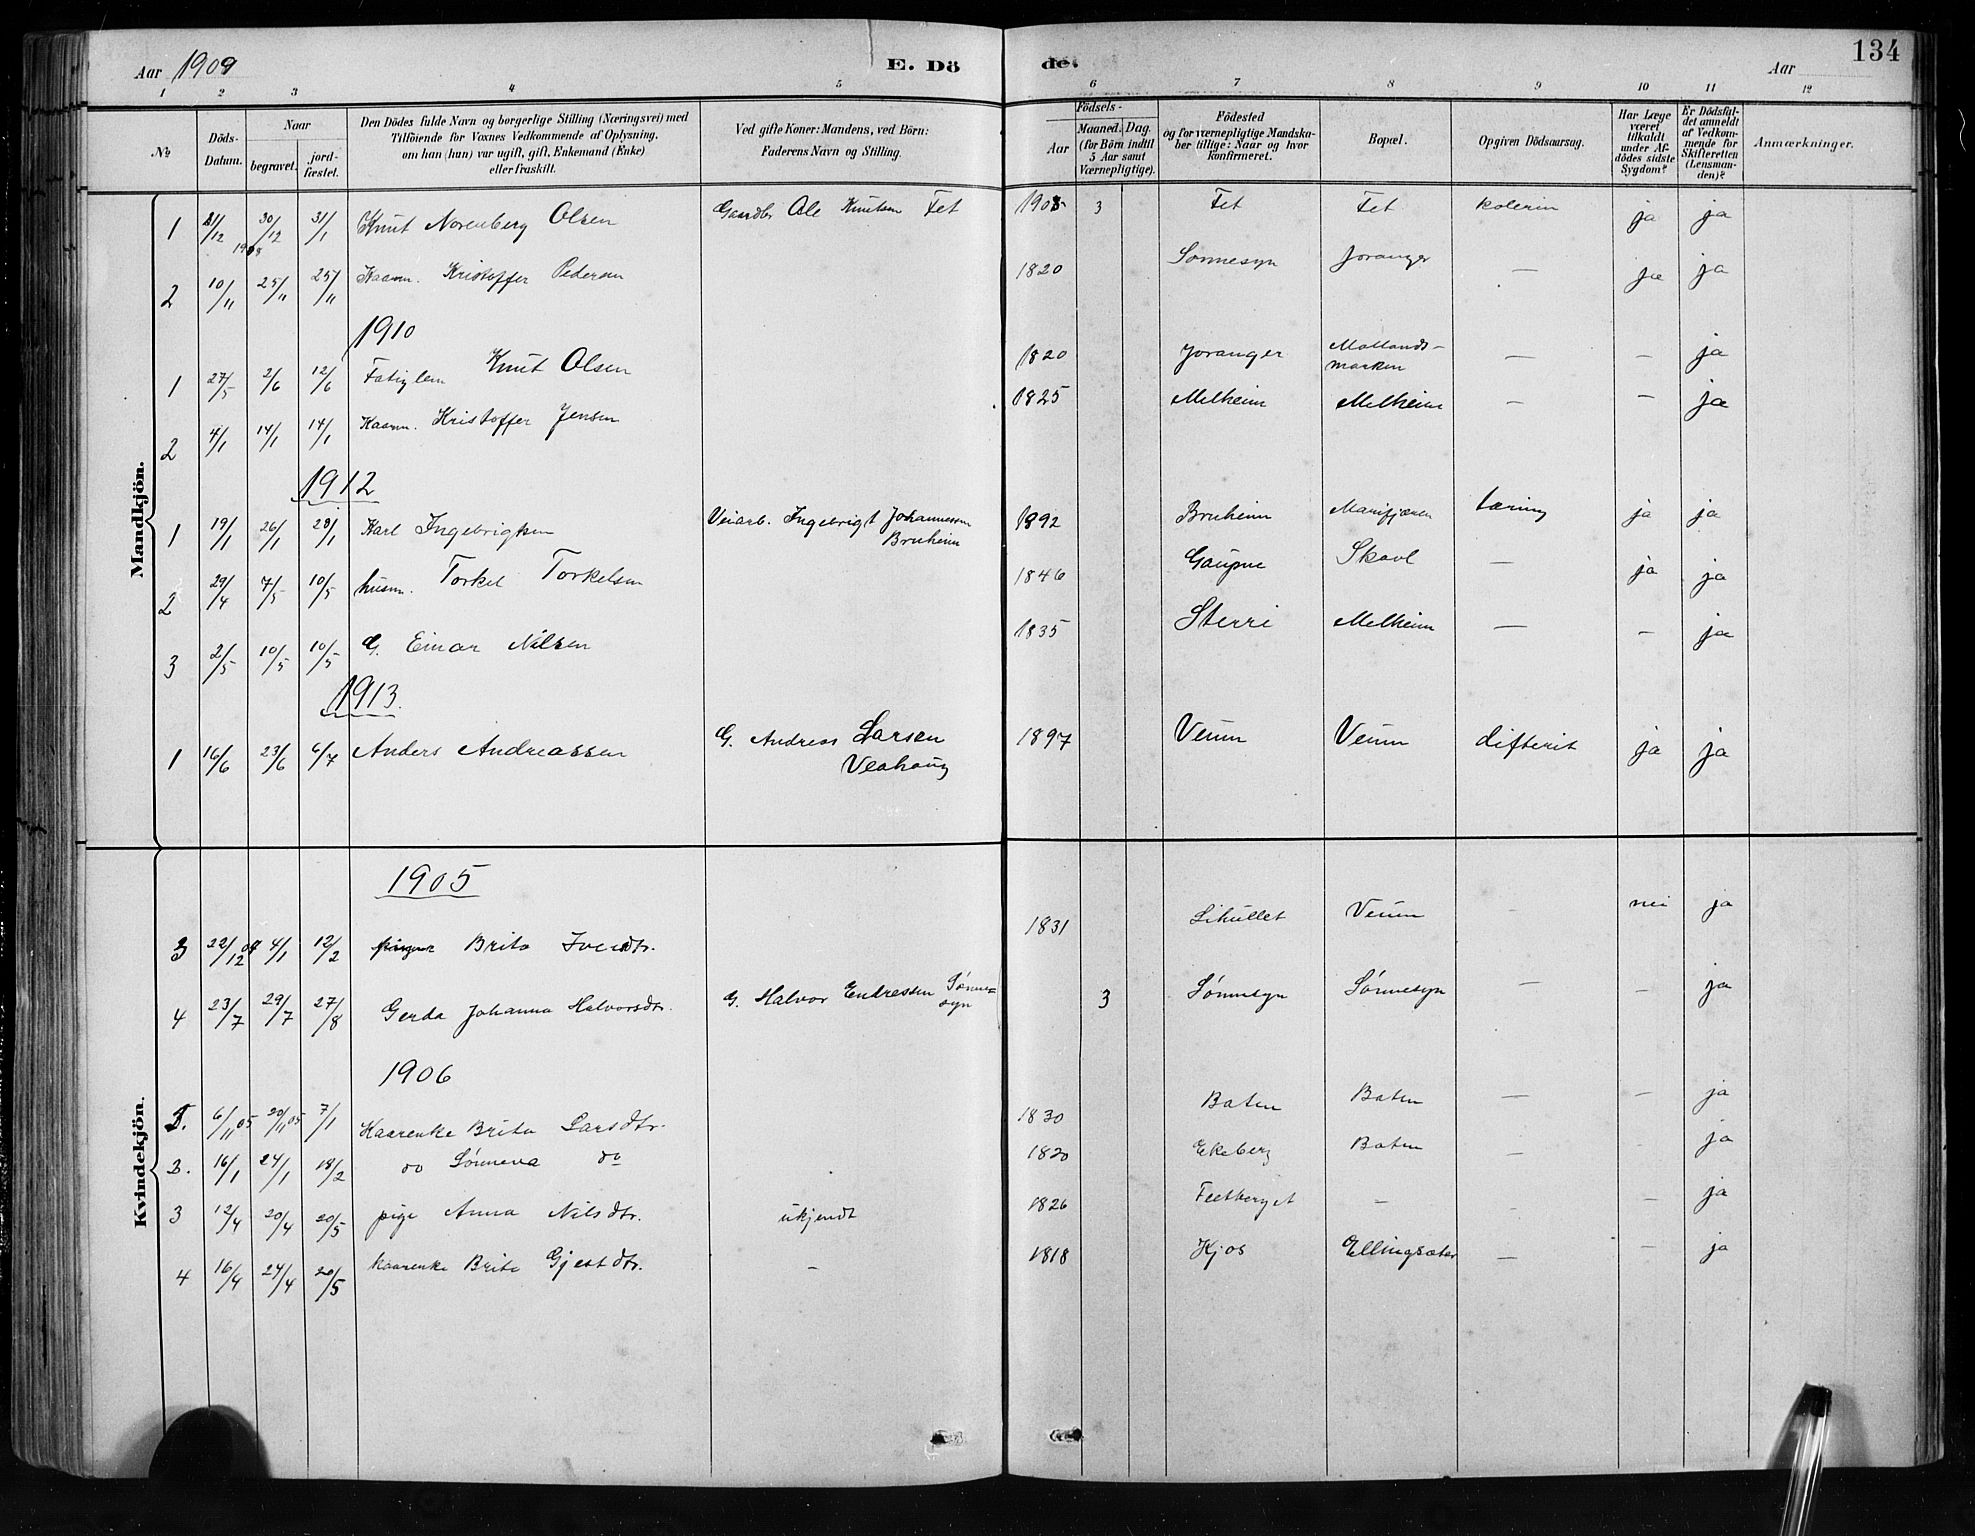 Aar 1909 E. Dö de. Aar 134
1 2 3 4 5 6 7 8 9 10 11 12
№
Döds-Datum.
Naar
begravet.
jord-fæstet.
Den Dödes fulde Navn og borgerlige Stilling (Næringsvei) med
Tilföiende for Voxnes Vedkommende af Oplysning,
om han (hun) var ugift, gift, Enkemand (Enke)
eller fraskilt.
Ved gifte Koner: Mandens, ved Börn:
Faderens Navn og Stilling.
Födsels-
Aar
Maaned. Dag.
(for Börn indtil
5 Aar samt
Værnepligtige).
Födested
og for værnepligtige Mandska-
ber tillige: Naar og hvor
konfirmeret.
Bopæl.
Opgiven Dödsaarsag.
Har Læge
været
tilkaldt
under Af-
dödes sidste
Sygdom?
Er Dödsfal-
det anmeldt
af Vedkom-
mende for
Skifteretten
(Lensman-
den)?
Anmærkninger.
Mandkjön.
1 21/12 30/12 31/1 Knut Norenberg Olsen Gaardbr Ole Knutsen Fet 1908 3 Fet Fet kolerin ja ja
1908
2 10/11 25/11 25/11 Kaarm. Kristoffer Pedersen 1820 Sonnesyn Joranger — ja ja
1910
1 27/5 2/6 12/6 Fatiglem Knut Olsen 1820 Joranger Mollands-
marken — — ja
2 4/1 14/1 14/1 Kaarm. Kristoffer Jensen 1825 Melheim Melheim — — ja
1912
1 19/1 26/1 28/1 Karl Ingebrigtsen Veiarb. Ingebrigt Johannessen
Bruheim 1892 Bruheim Marifjæren tæring ja ja
2 29/4 7/5 10/5 husm. Torkel Torkelsen 1846 Gaupne Skavl — ja ja
3 2/5 10/5 10/5 G. Einar Nilsen 1835 Sterri Melheim — — ja
1913.
1 16/6 23/6 6/7 Anders Andreassen G. Andreas Larsen
Veahaug 1897 Veum Veum difterit ja ja
Kvindekjön.
1905
3 22/12 04 4/1 12/2 Brita Iversdtr. 1831 Lihullet Veum — nei ja
4 23/7 29/7 27/8 Gerda Johanna Halvorsdtr. G. Halvor Endressen Sønne-
syn 3 Sønnesyn Sønnesyn — — ja
1906
1. 6/11 05 20/11 05 7/1 Kaarenke Brita Larsdtr. 1830 Baten Baten — — ja
2. 16/1 24/1 18/2 do Sønneva do 1820 Ekeberg Baten — — ja
3 12/4 20/4 20/5 pige Anna Nilsdtr. ukjendt 1826 Feetberget — — ja
4 16/4 24/4 20/5 kaarenke Brita Gjestdtr. — 1818 Kjos Ellingsæter — — ja